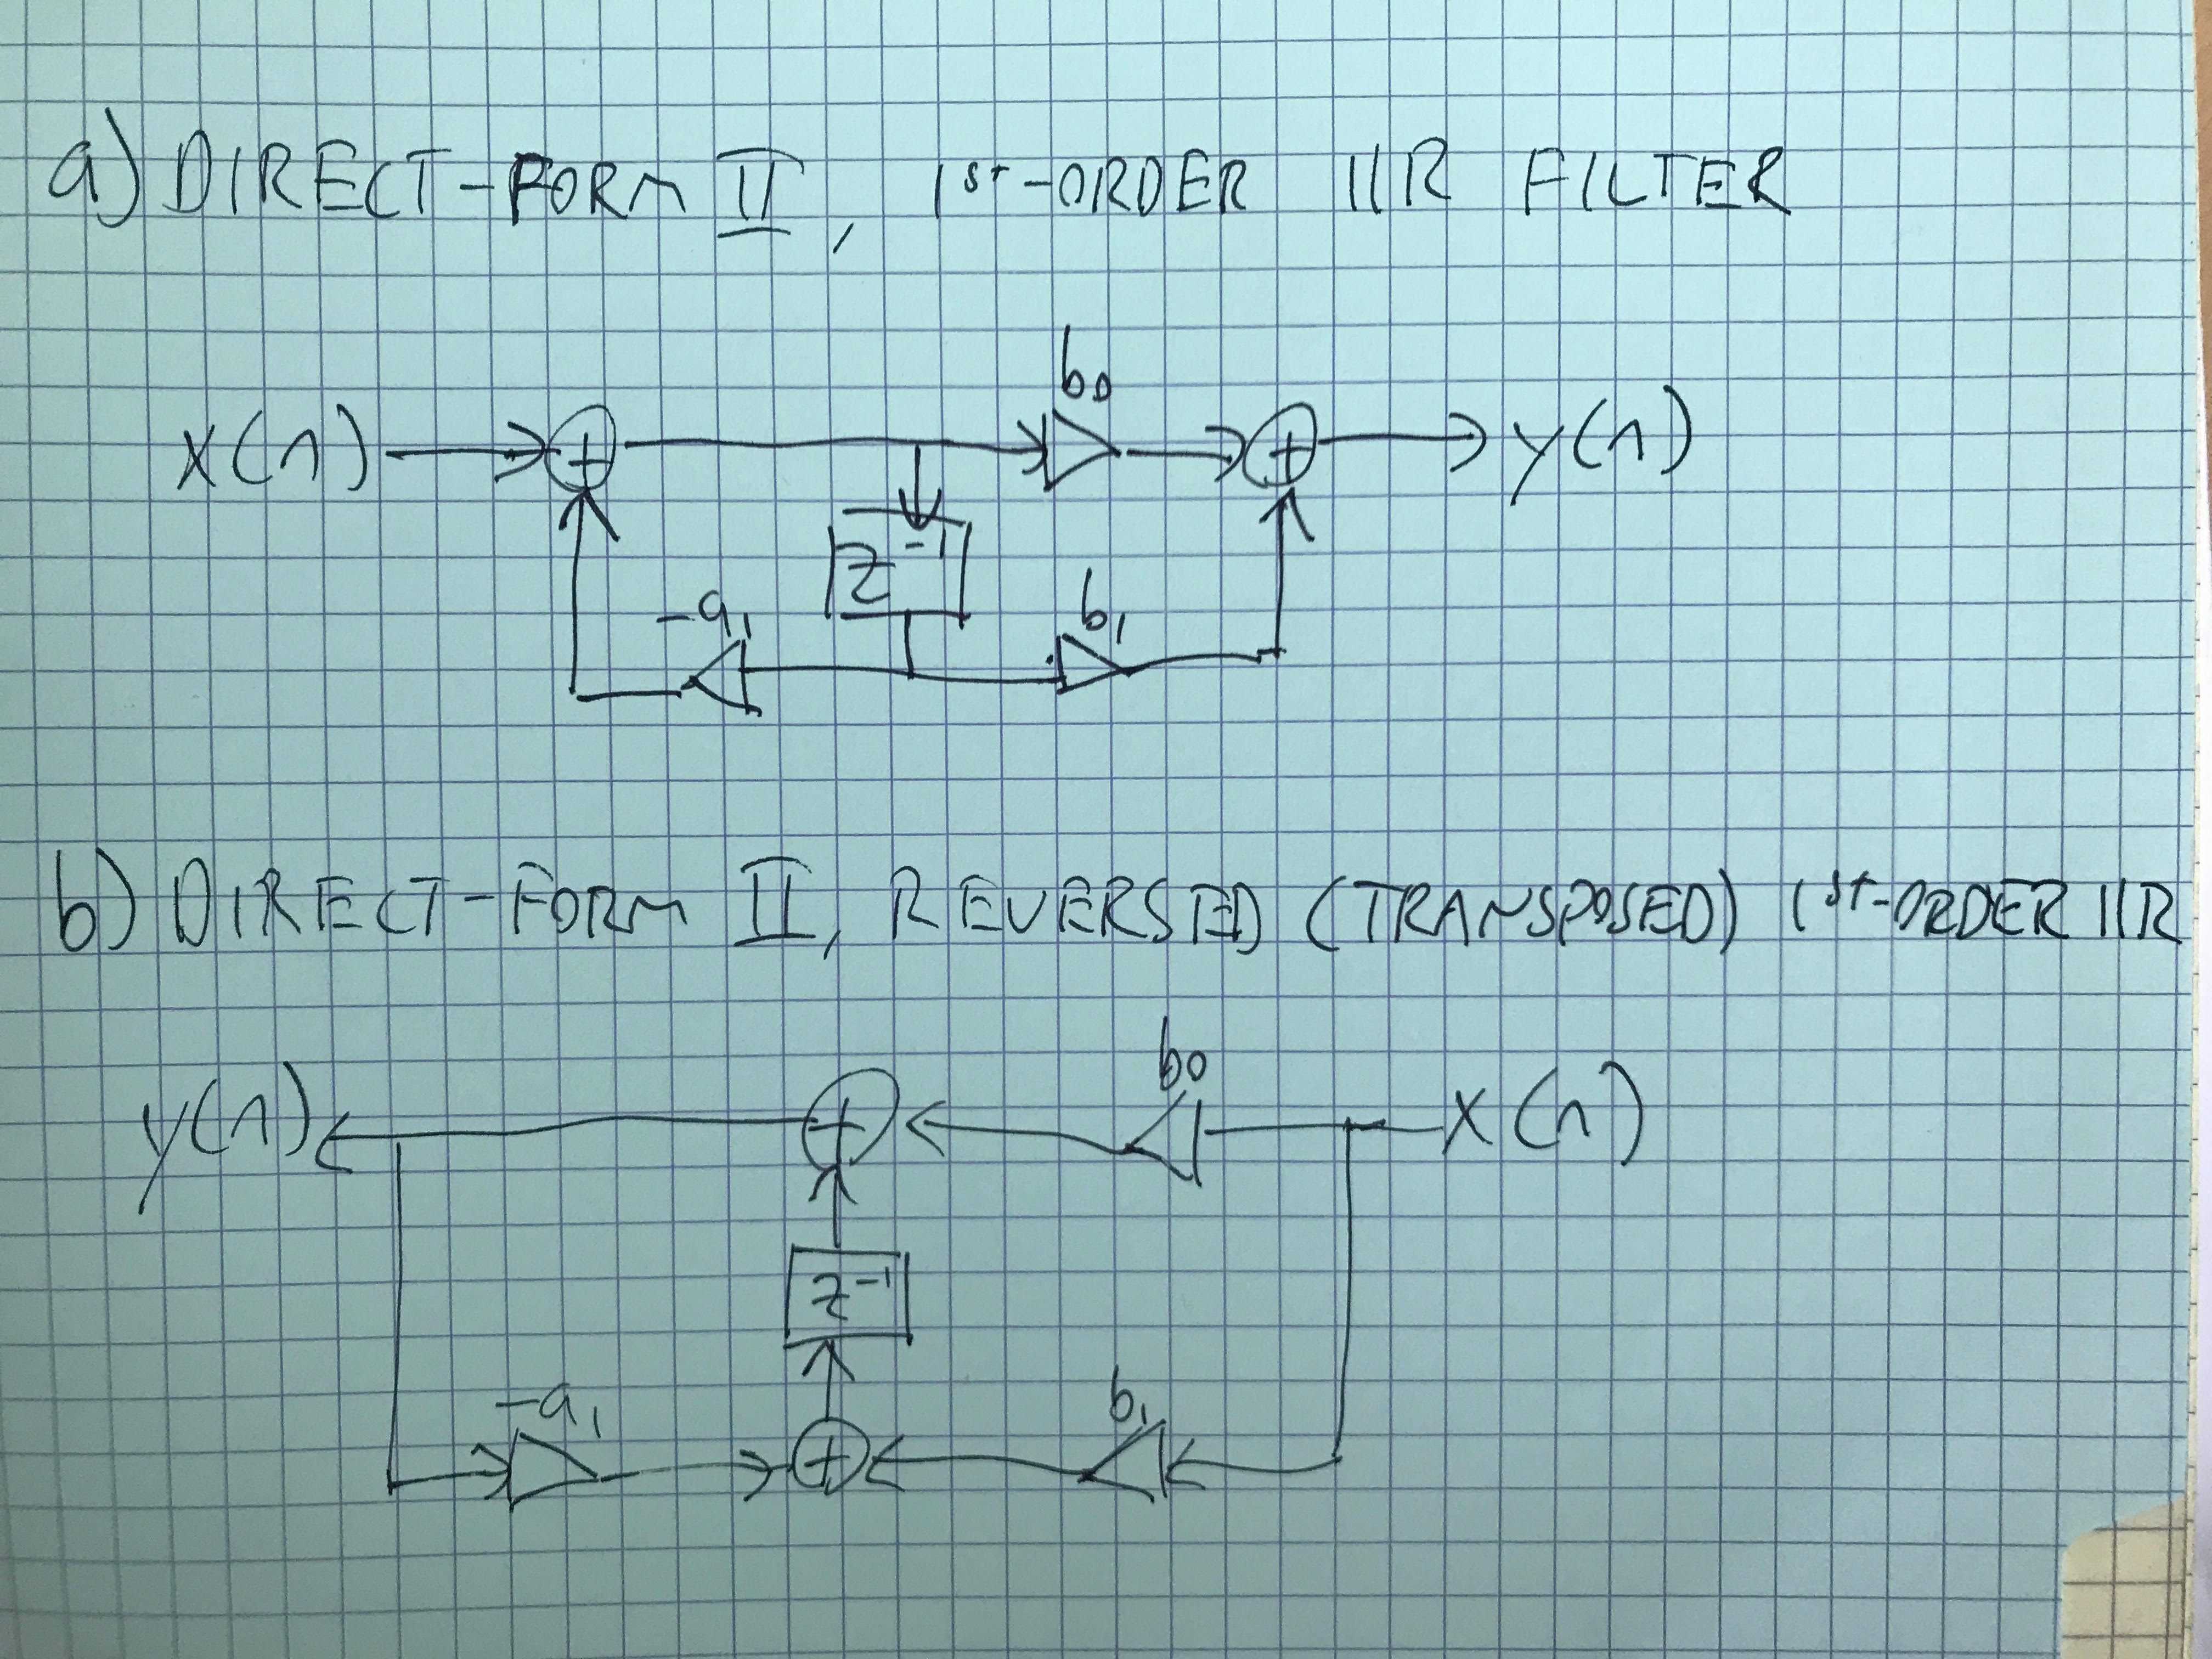 a) DIRECT-FORM II, 1st-ORDER IIR FILTER
b0
x(n) + y(n)
z^-1
-a1 b1
b) DIRECT-FORM II, REVERSED (TRANSPOSED) 1st-ORDER IIR
b0
y(n) + x(n)
z^-1
-a1 b1
+